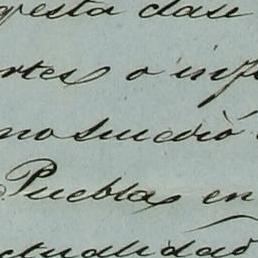 esta clase
rtes o inf
mo sucedió
Puebla en
ctualidad